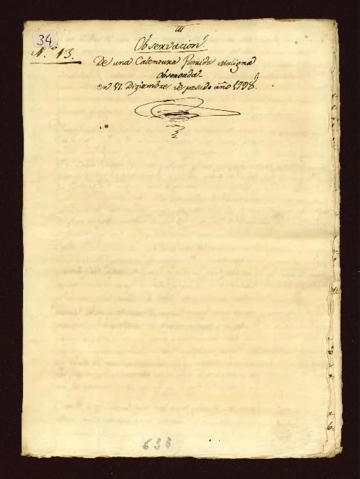 34
N.º 13.
Observacion
De una Calentura Putrida Maligna
Observada
en 31. Diziembre de pasado año 1798.
633